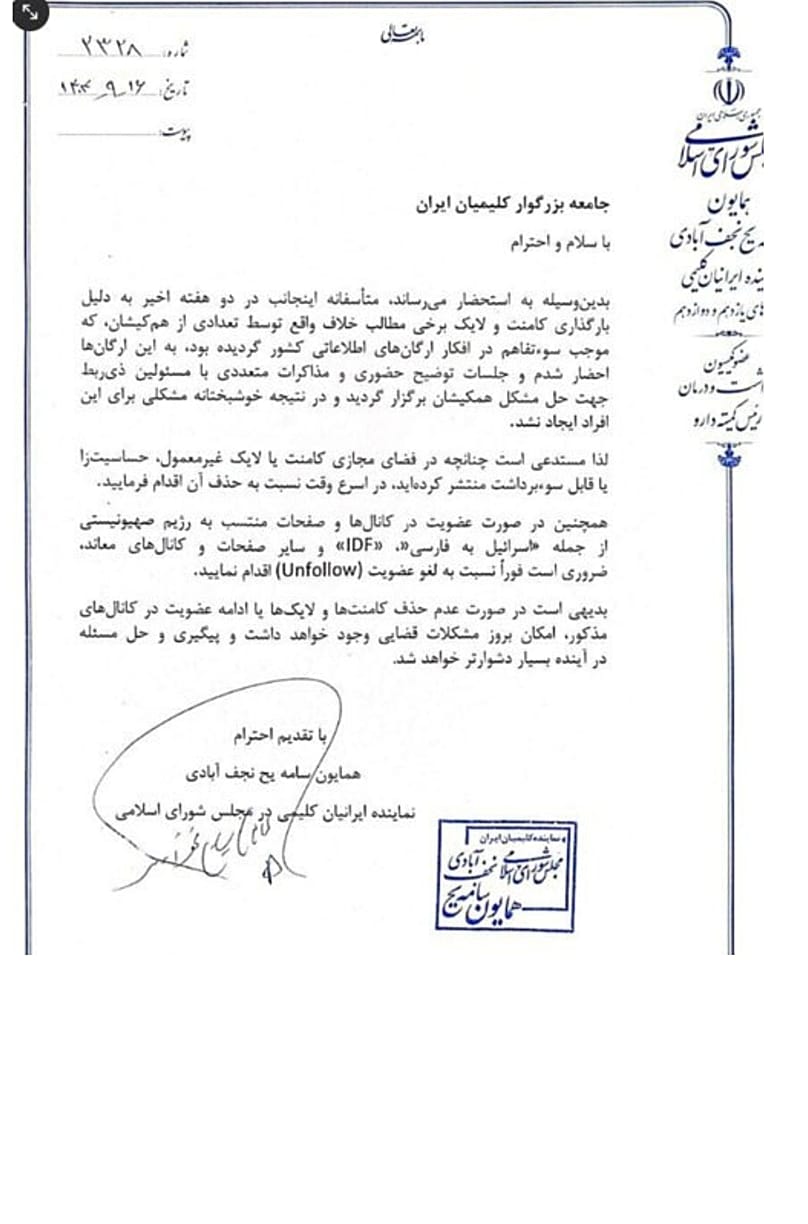 باسمه تعالی
شماره: ۲۳۲۸
تاریخ: ۱۴۰۴/۹/۱۶
پیوست:
جمهوری اسلامی ایران
مجلس شورای اسلامی
همایون
نجف آبادی
ایرانیان کلیمی
یازدهم و دوازدهم
عضو کمیسیون
و درمان
رئیس کمیته دارو
جامعه بزرگوار کلیمیان ایران
با سلام و احترام
بدین‌وسیله به استحضار می‌رساند، متأسفانه اینجانب در دو هفته اخیر به دلیل
بارگذاری کامنت و لایک برخی مطالب خلاف واقع توسط تعدادی از هم‌کیشان، که
موجب سوءتفاهم در افکار ارگان‌های اطلاعاتی کشور گردیده بود، به این ارگان‌ها
احضار شدم و جلسات توضیح حضوری و مذاکرات متعددی با مسئولین ذی‌ربط
جهت حل مشکل همکیشان برگزار گردید و در نتیجه خوشبختانه مشکلی برای این
افراد ایجاد نشد.
لذا مستدعی است چنانچه در فضای مجازی کامنت یا لایک غیرمعمول، حساسیت‌زا
یا قابل سوءبرداشت منتشر کرده‌اید، در اسرع وقت نسبت به حذف آن اقدام فرمایید.
همچنین در صورت عضویت در کانال‌ها و صفحات منتسب به رژیم صهیونیستی
از جمله «اسرائیل به فارسی»، «IDF» و سایر صفحات و کانال‌های معاند،
ضروری است فوراً نسبت به لغو عضویت (Unfollow) اقدام نمایید.
بدیهی است در صورت عدم حذف کامنت‌ها و لایک‌ها یا ادامه عضویت در کانال‌های
مذکور، امکان بروز مشکلات قضایی وجود خواهد داشت و پیگیری و حل مسئله
در آینده بسیار دشوارتر خواهد شد.
با تقدیم احترام
همایون سامه یح نجف آبادی
نماینده ایرانیان کلیمی در مجلس شورای اسلامی
نماینده کلیمیان ایران
مجلس شورای اسلامی نجف آبادی
همایون سامه یح